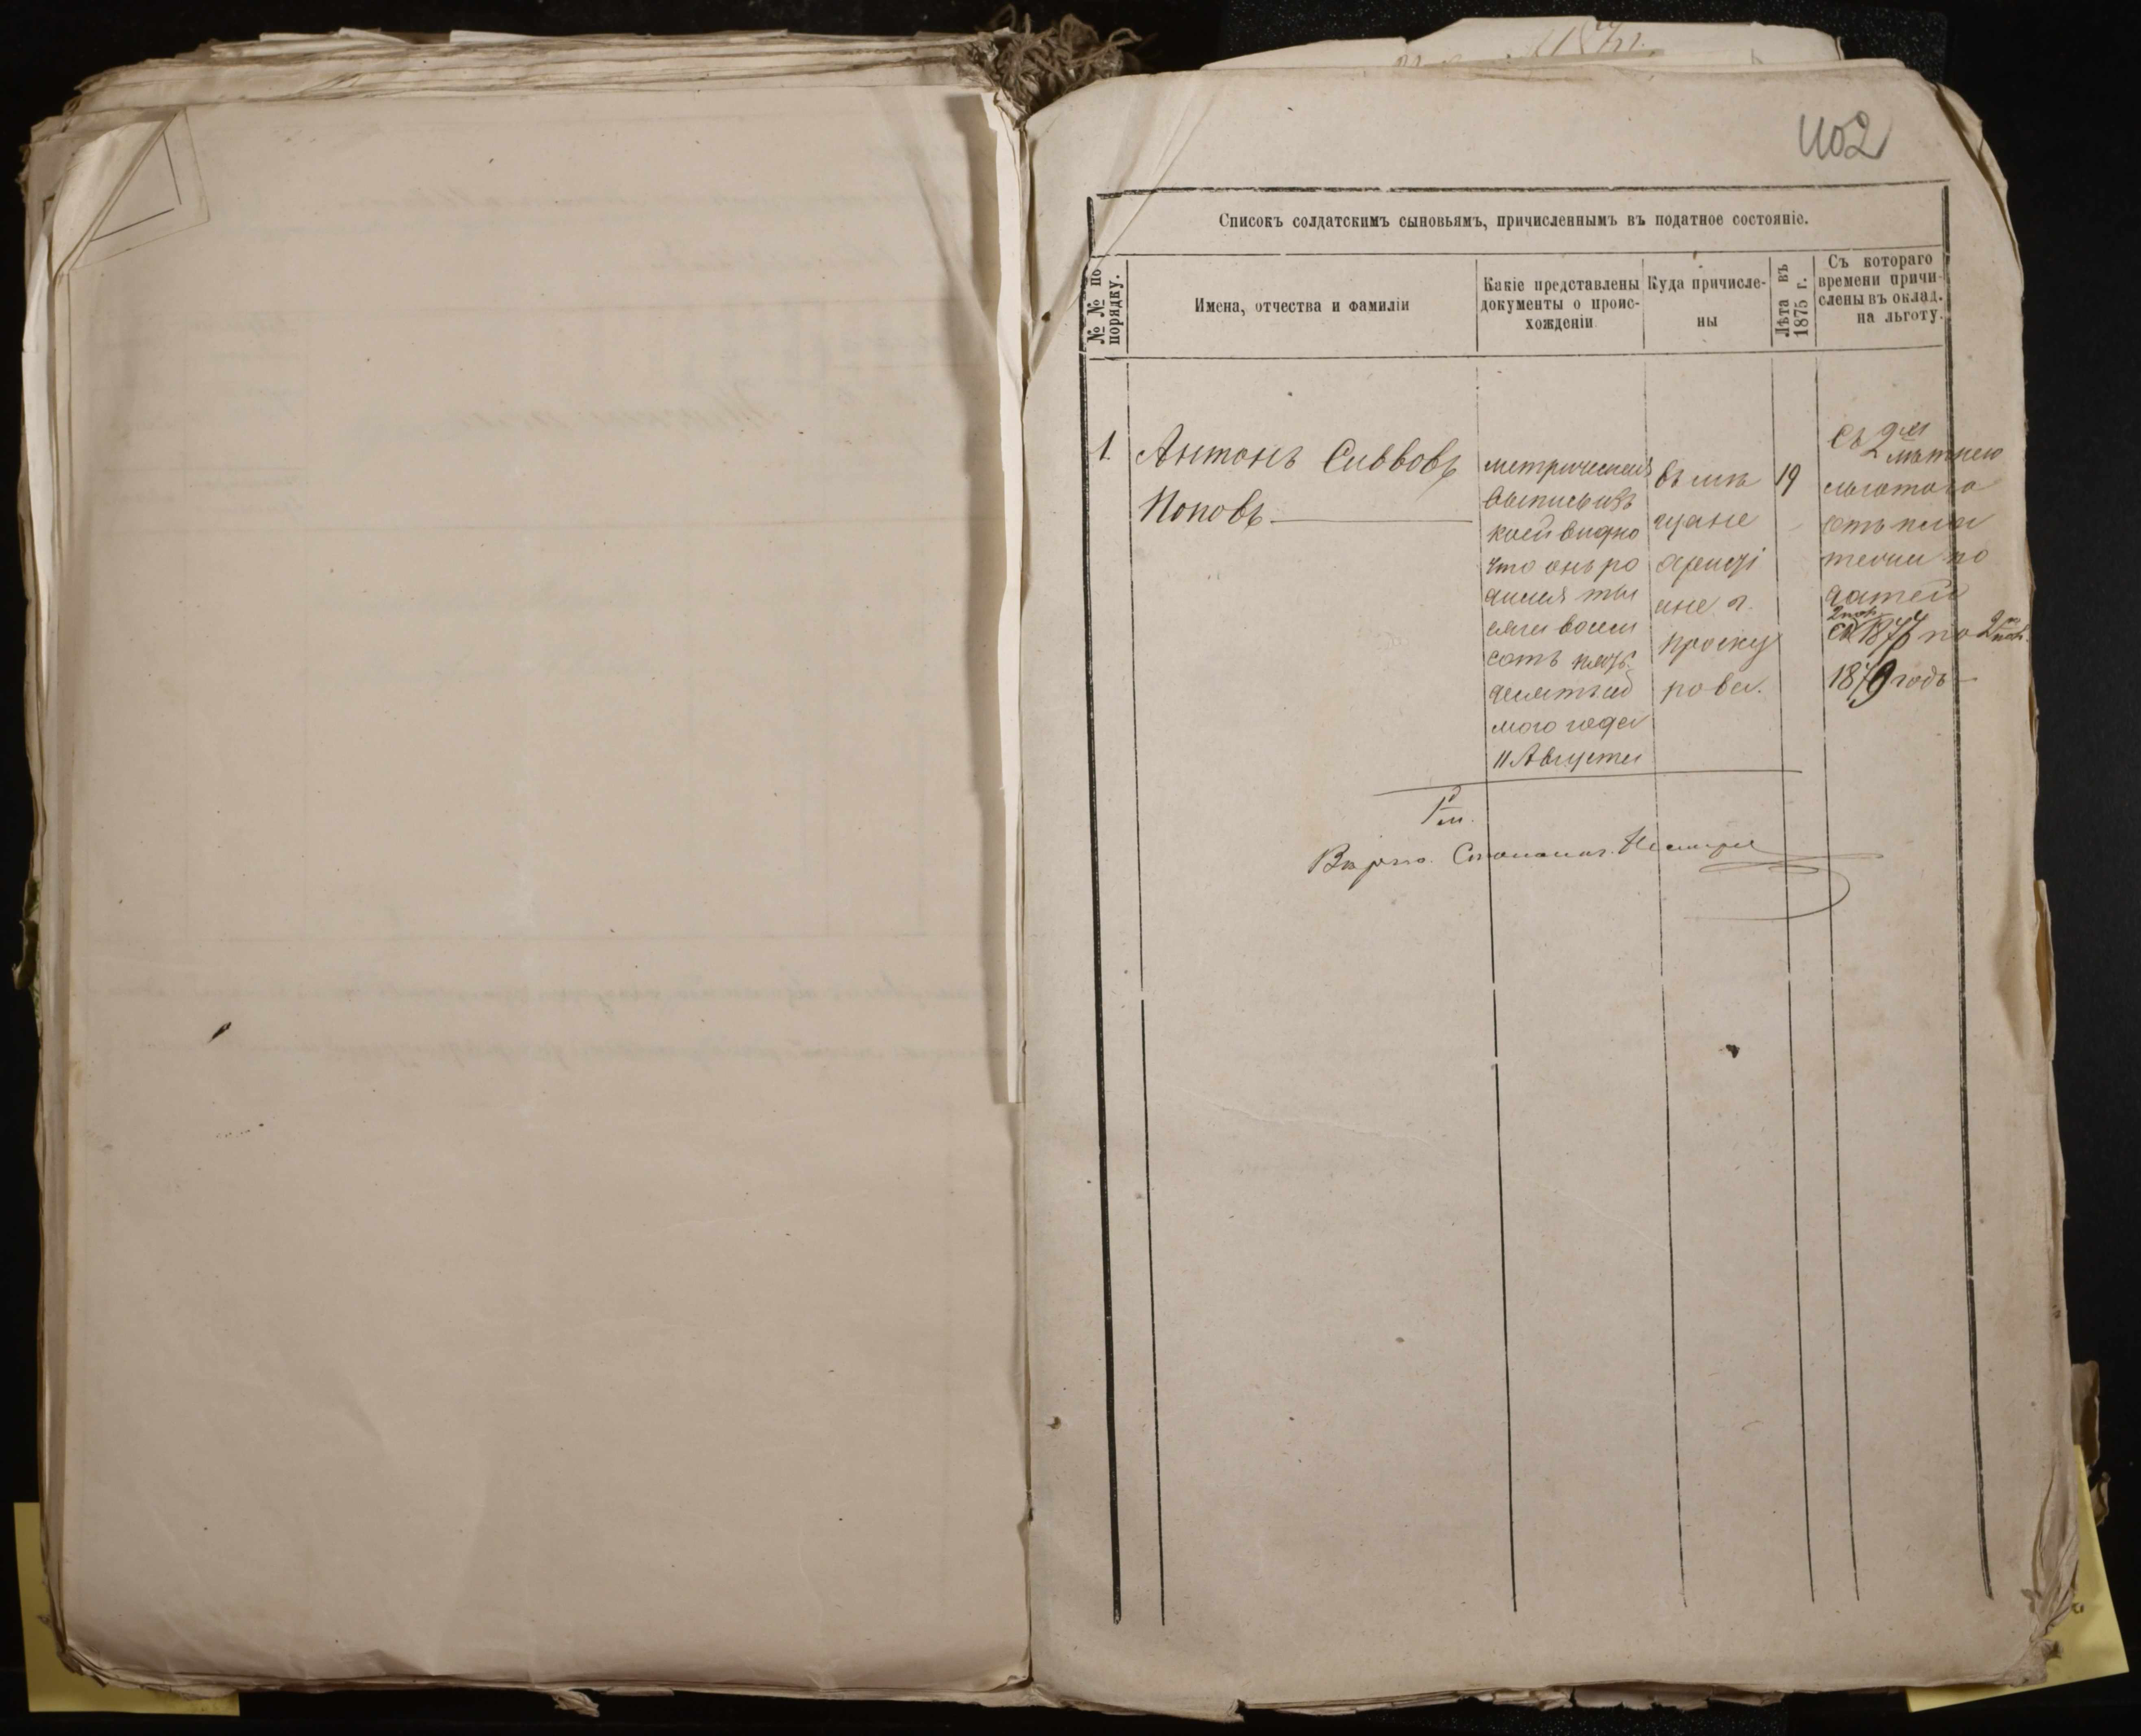 402
Списокъ солдатскимъ сыновьямъ, причисленнымъ въ податное состояніе.
№ № по
порядку.
Имена, отчества и фамиліи
Какіе представлены
документы о проис-
хожденіи
Куда причисле-
ны
Лѣта въ
1875 г.
Съ котораго
времени причи-
слены въ оклад.
на льготу.
1.
Антонъ Саввовъ
Поповъ
метрическая
выпись изъ
коей видно
что онъ ро
дился ты
сяча восем
сотъ пядь
десятъ сѣд
мого года
11 Августа
въ мѣ
щане
г.
Проску
рова.
19
Съ 2
лѣтнею
льготою
отъ пла
тежи по
датей
съ 1877 по 2
1879 годъ
Вѣрно.